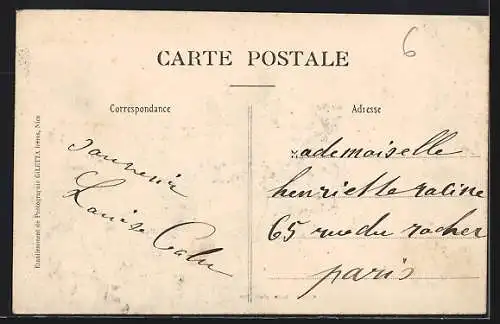 6
CARTE POSTALE
Correspondance
Adresse
Etablissement de Photographie GILETTA frères, Nice
Louise
Mademoiselle
henriette raline
65 rue du rocher
paris